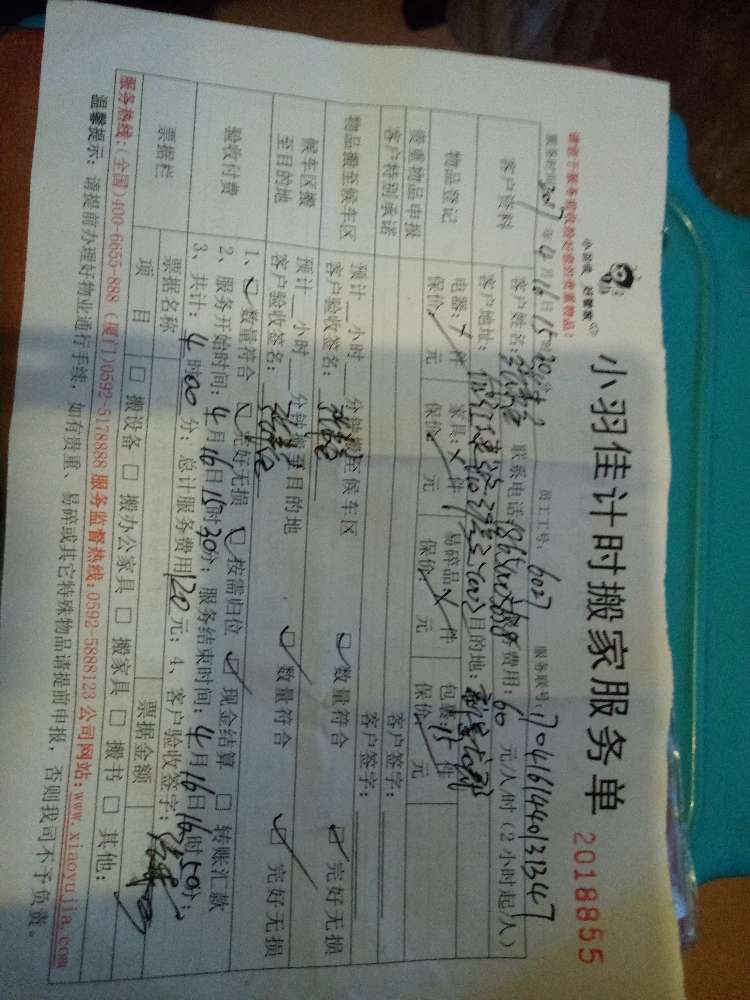 小羽佳 好管家
小羽佳计时搬家服务单 2018855
员工工号: 6027 服务联号: 1704161440131347
请您于服务前收捡好您的贵重物品:
服务时间2017年4月16日15时30分
客户资料 客户姓名: 联系电话: 服务费用: 60 元/人/时(2小时起/人)
客户地址: 目的地:
物品登记 电器: 件 家具: 件 易碎品 件 包裹: 15 件
保价 元 保价 元 保价 元 保价 元
贵重物品申报 客户签字:
客户特别承诺 客户签字:
物品搬至候车区 预计__小时__分钟搬至候车区
客户验收签名: 数量符合 完好无损
候车区搬至目的地 预计__小时__分钟搬至目的地
客户验收签名: 数量符合 完好无损
验收付费 1、数量符合 完好无损 按需归位 现金结算 转账汇款
2、服务开始时间: 4月16日15时30分; 服务结束时间: 4月16日16时50分;
3、共计: 4时00分; 总计服务费用120元; 4、客户验收签字:
票据栏 票据名称 票据金额
项目 搬设备 搬办公家具 搬家具 搬书 其他:
服务热线:(全国)400-6655-888 (厦门)0592-5178888 服务监督热线:0592-5888123 公司网站:www.xiaoyujia.com
温馨提示: 请提前办理好物业通行手续, 如有贵重、易碎或其它特殊物品请提前申报, 否则我司不予负责。